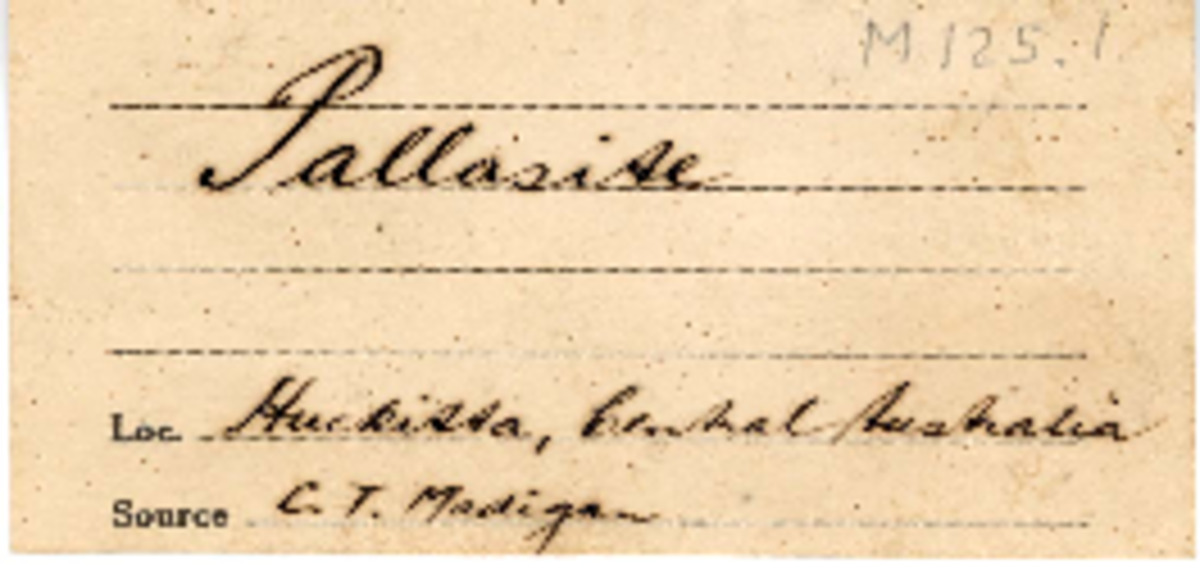 M125.1
Pallasite
Loc. Huckitta, Central Australia
Source C. T. Madigan